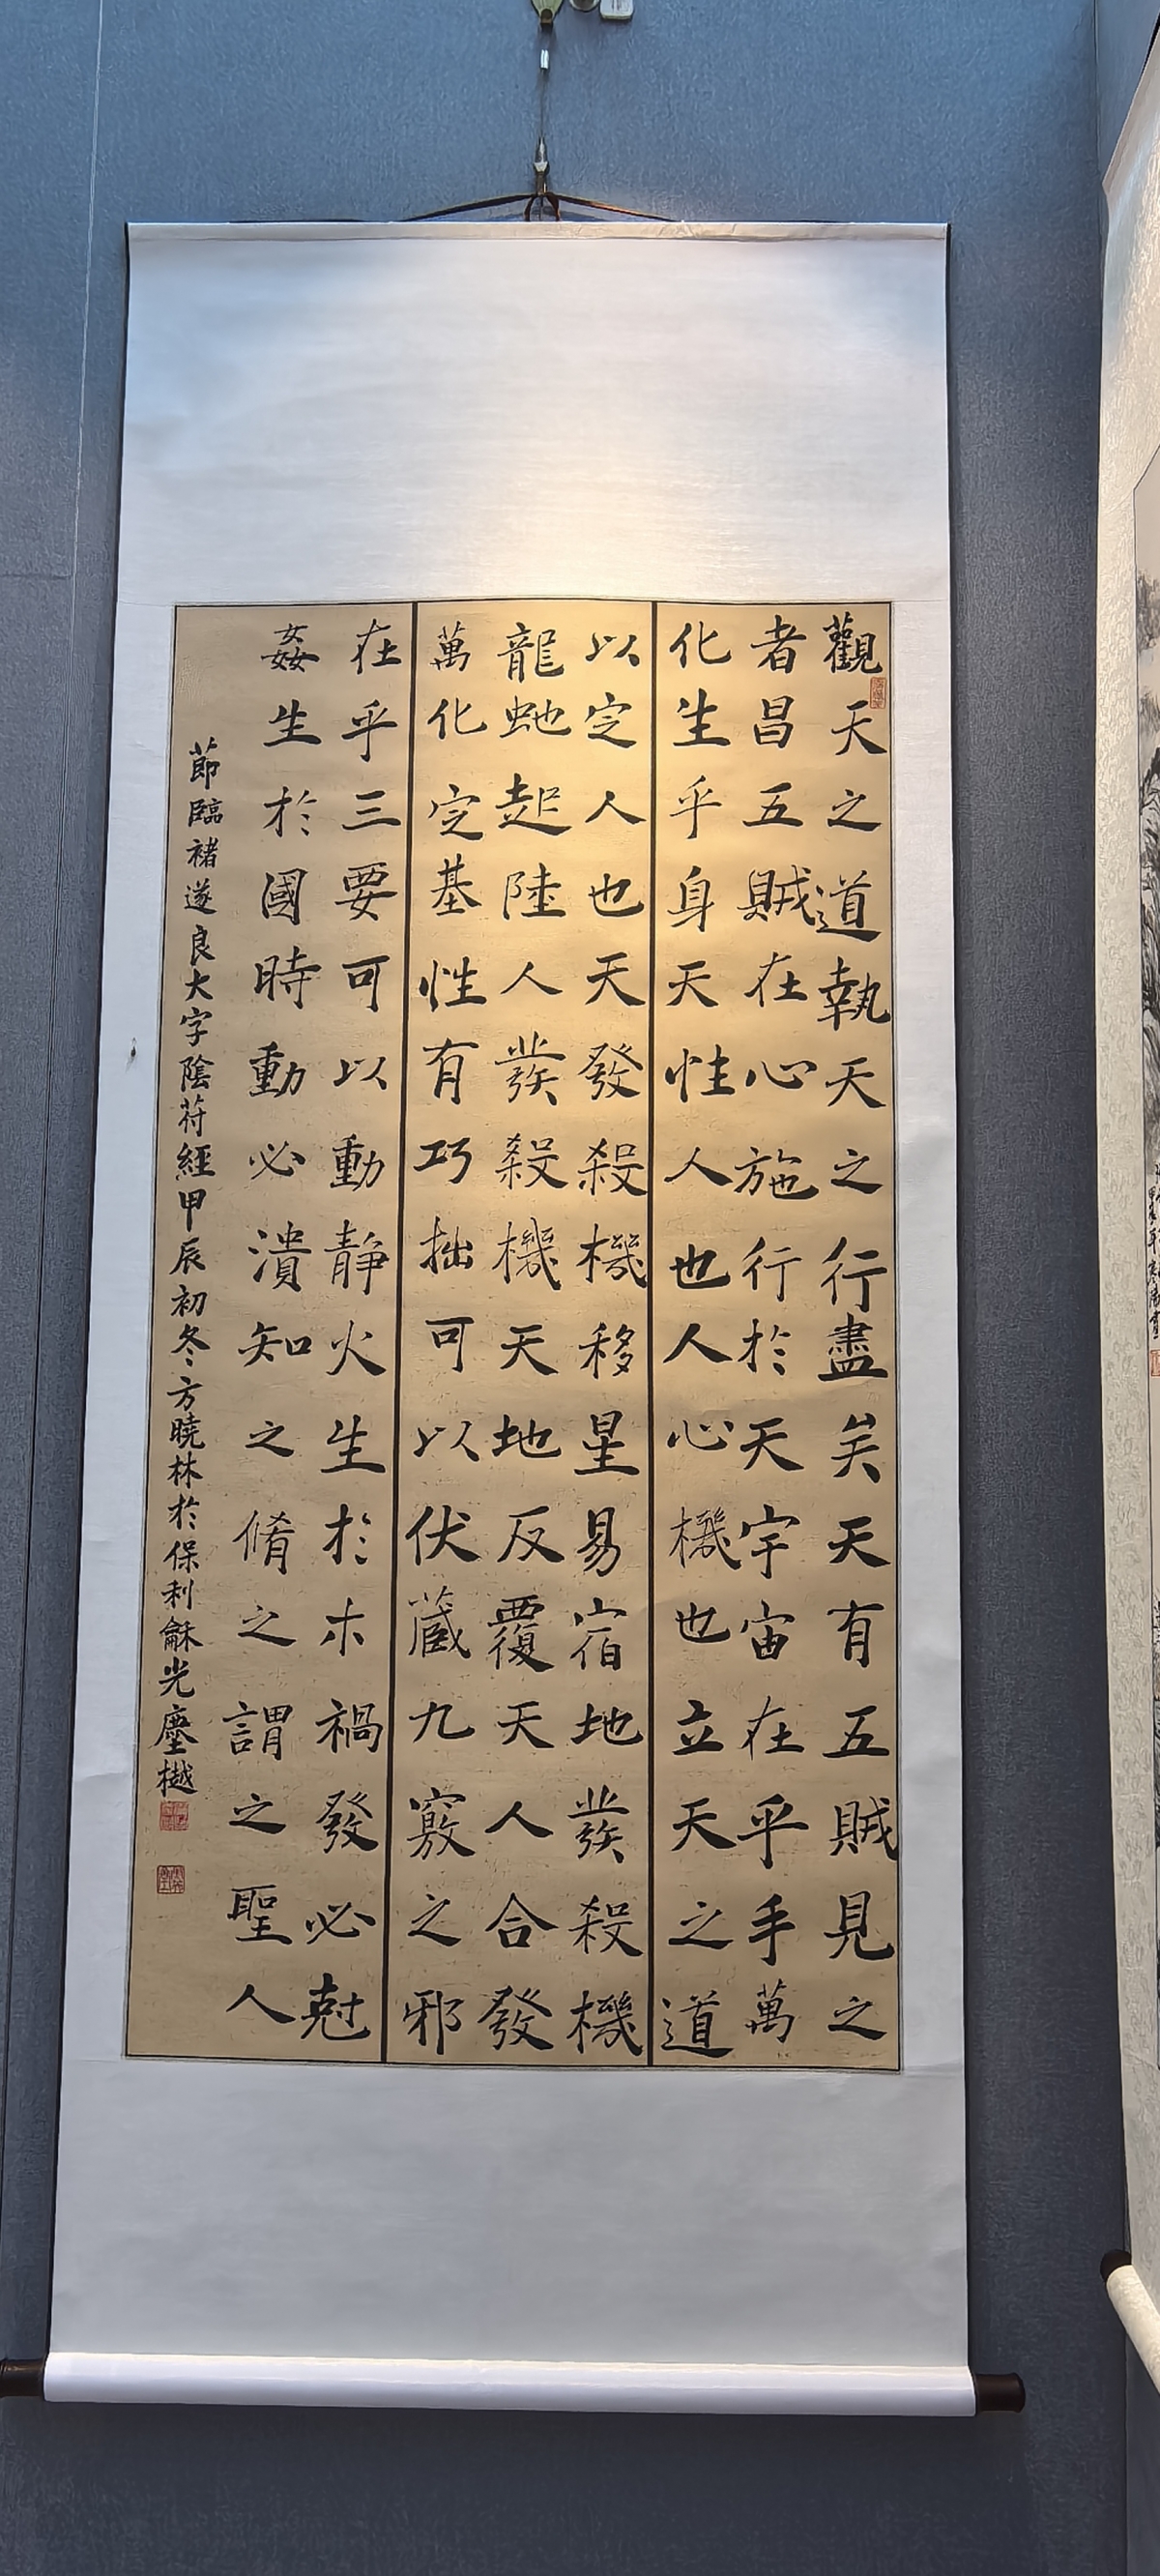 觀天之道執天之行盡矣天有五賊見之
者昌五賊在心施行於天宇宙在乎手萬
化生乎身天性人也人心機也立天之道
以定人也天發殺機移星易宿地發殺機
龍虵起陸人發殺機天地反覆天人合發
萬化定基性有巧拙可以伏藏九竅之邪
在乎三要可以動靜火生於木禍發必尅
姦生於國時動必潰知之脩之謂之聖人
莭臨褚遂良大字陰符經甲辰初冬方曉林於保利龢光塵樾